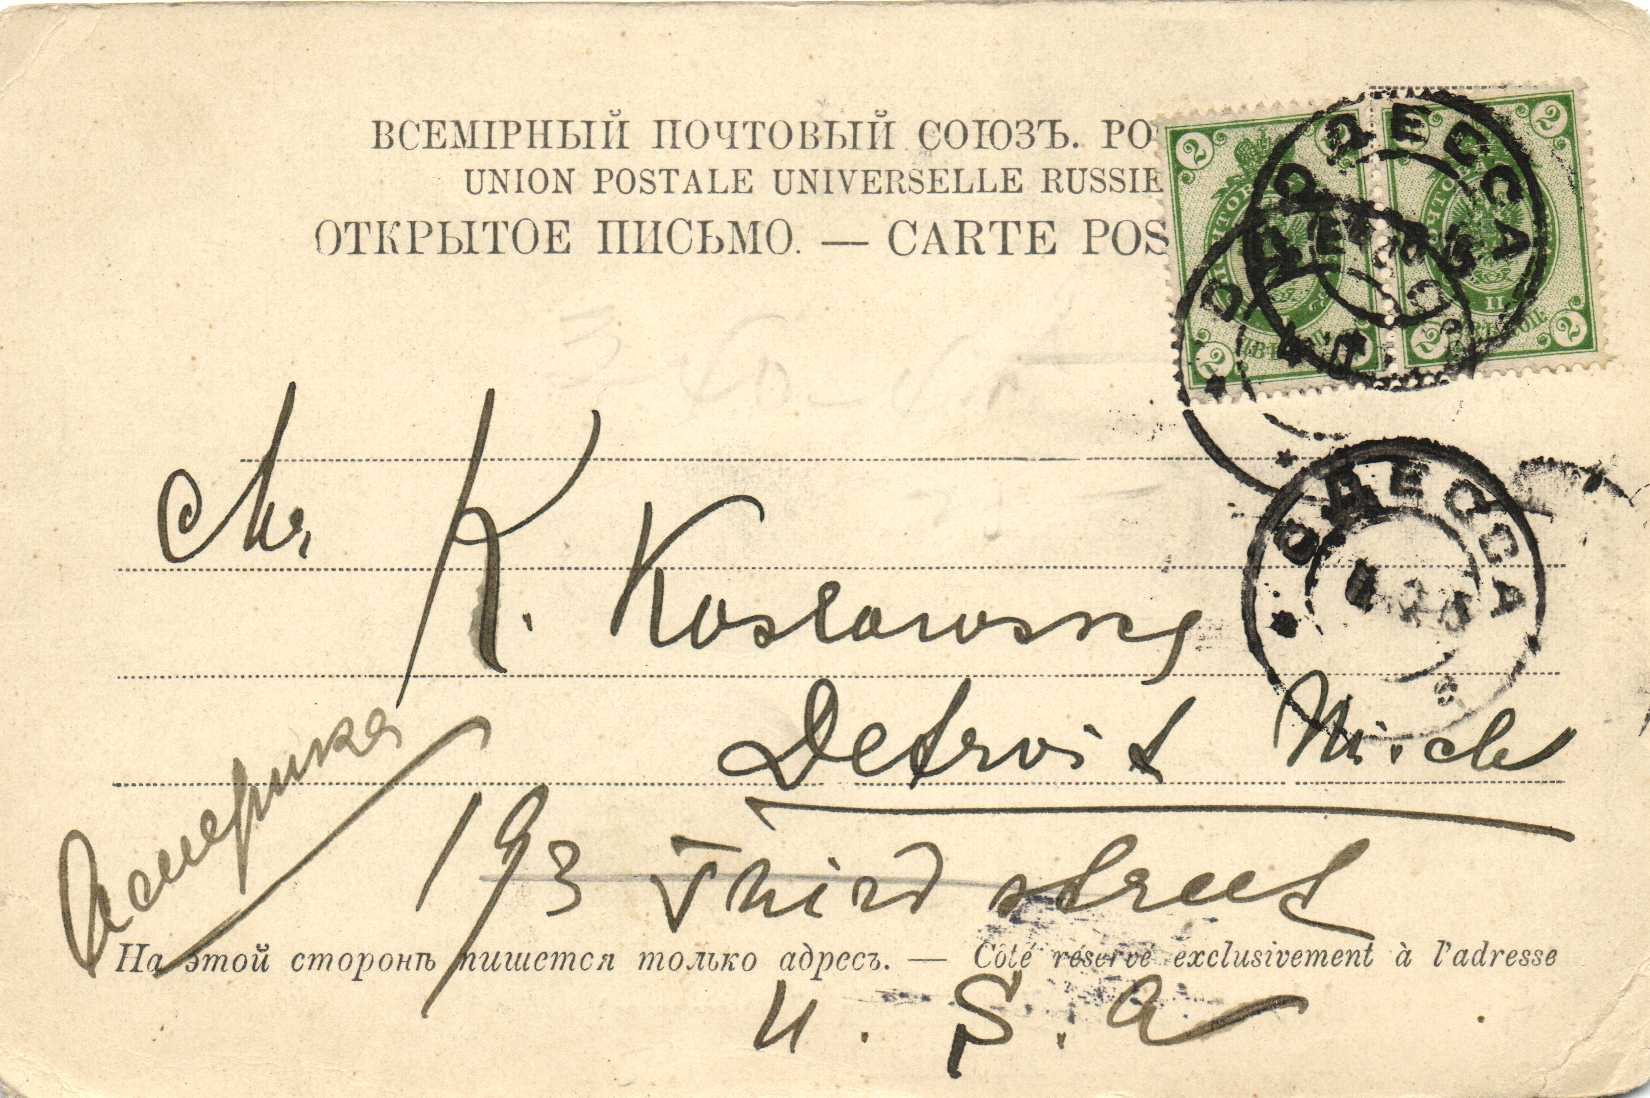 ВСЕМІРНЫЙ ПОЧТОВЫЙ СОЮЗЪ. РО
UNION POSTALE UNIVERSELLE RUSSIE
ОТКРЫТОЕ ПИСЬМО. — CARTE POS
2 2
2 2 2 2
II
ОДЕССА
ОДЕССА
Mr K. Koslowsky
Detroit Mich
Америка
193 Third street
На этой сторонѣ пишется только адресъ. — Côté réservé exclusivement à l'adresse
U. S. A